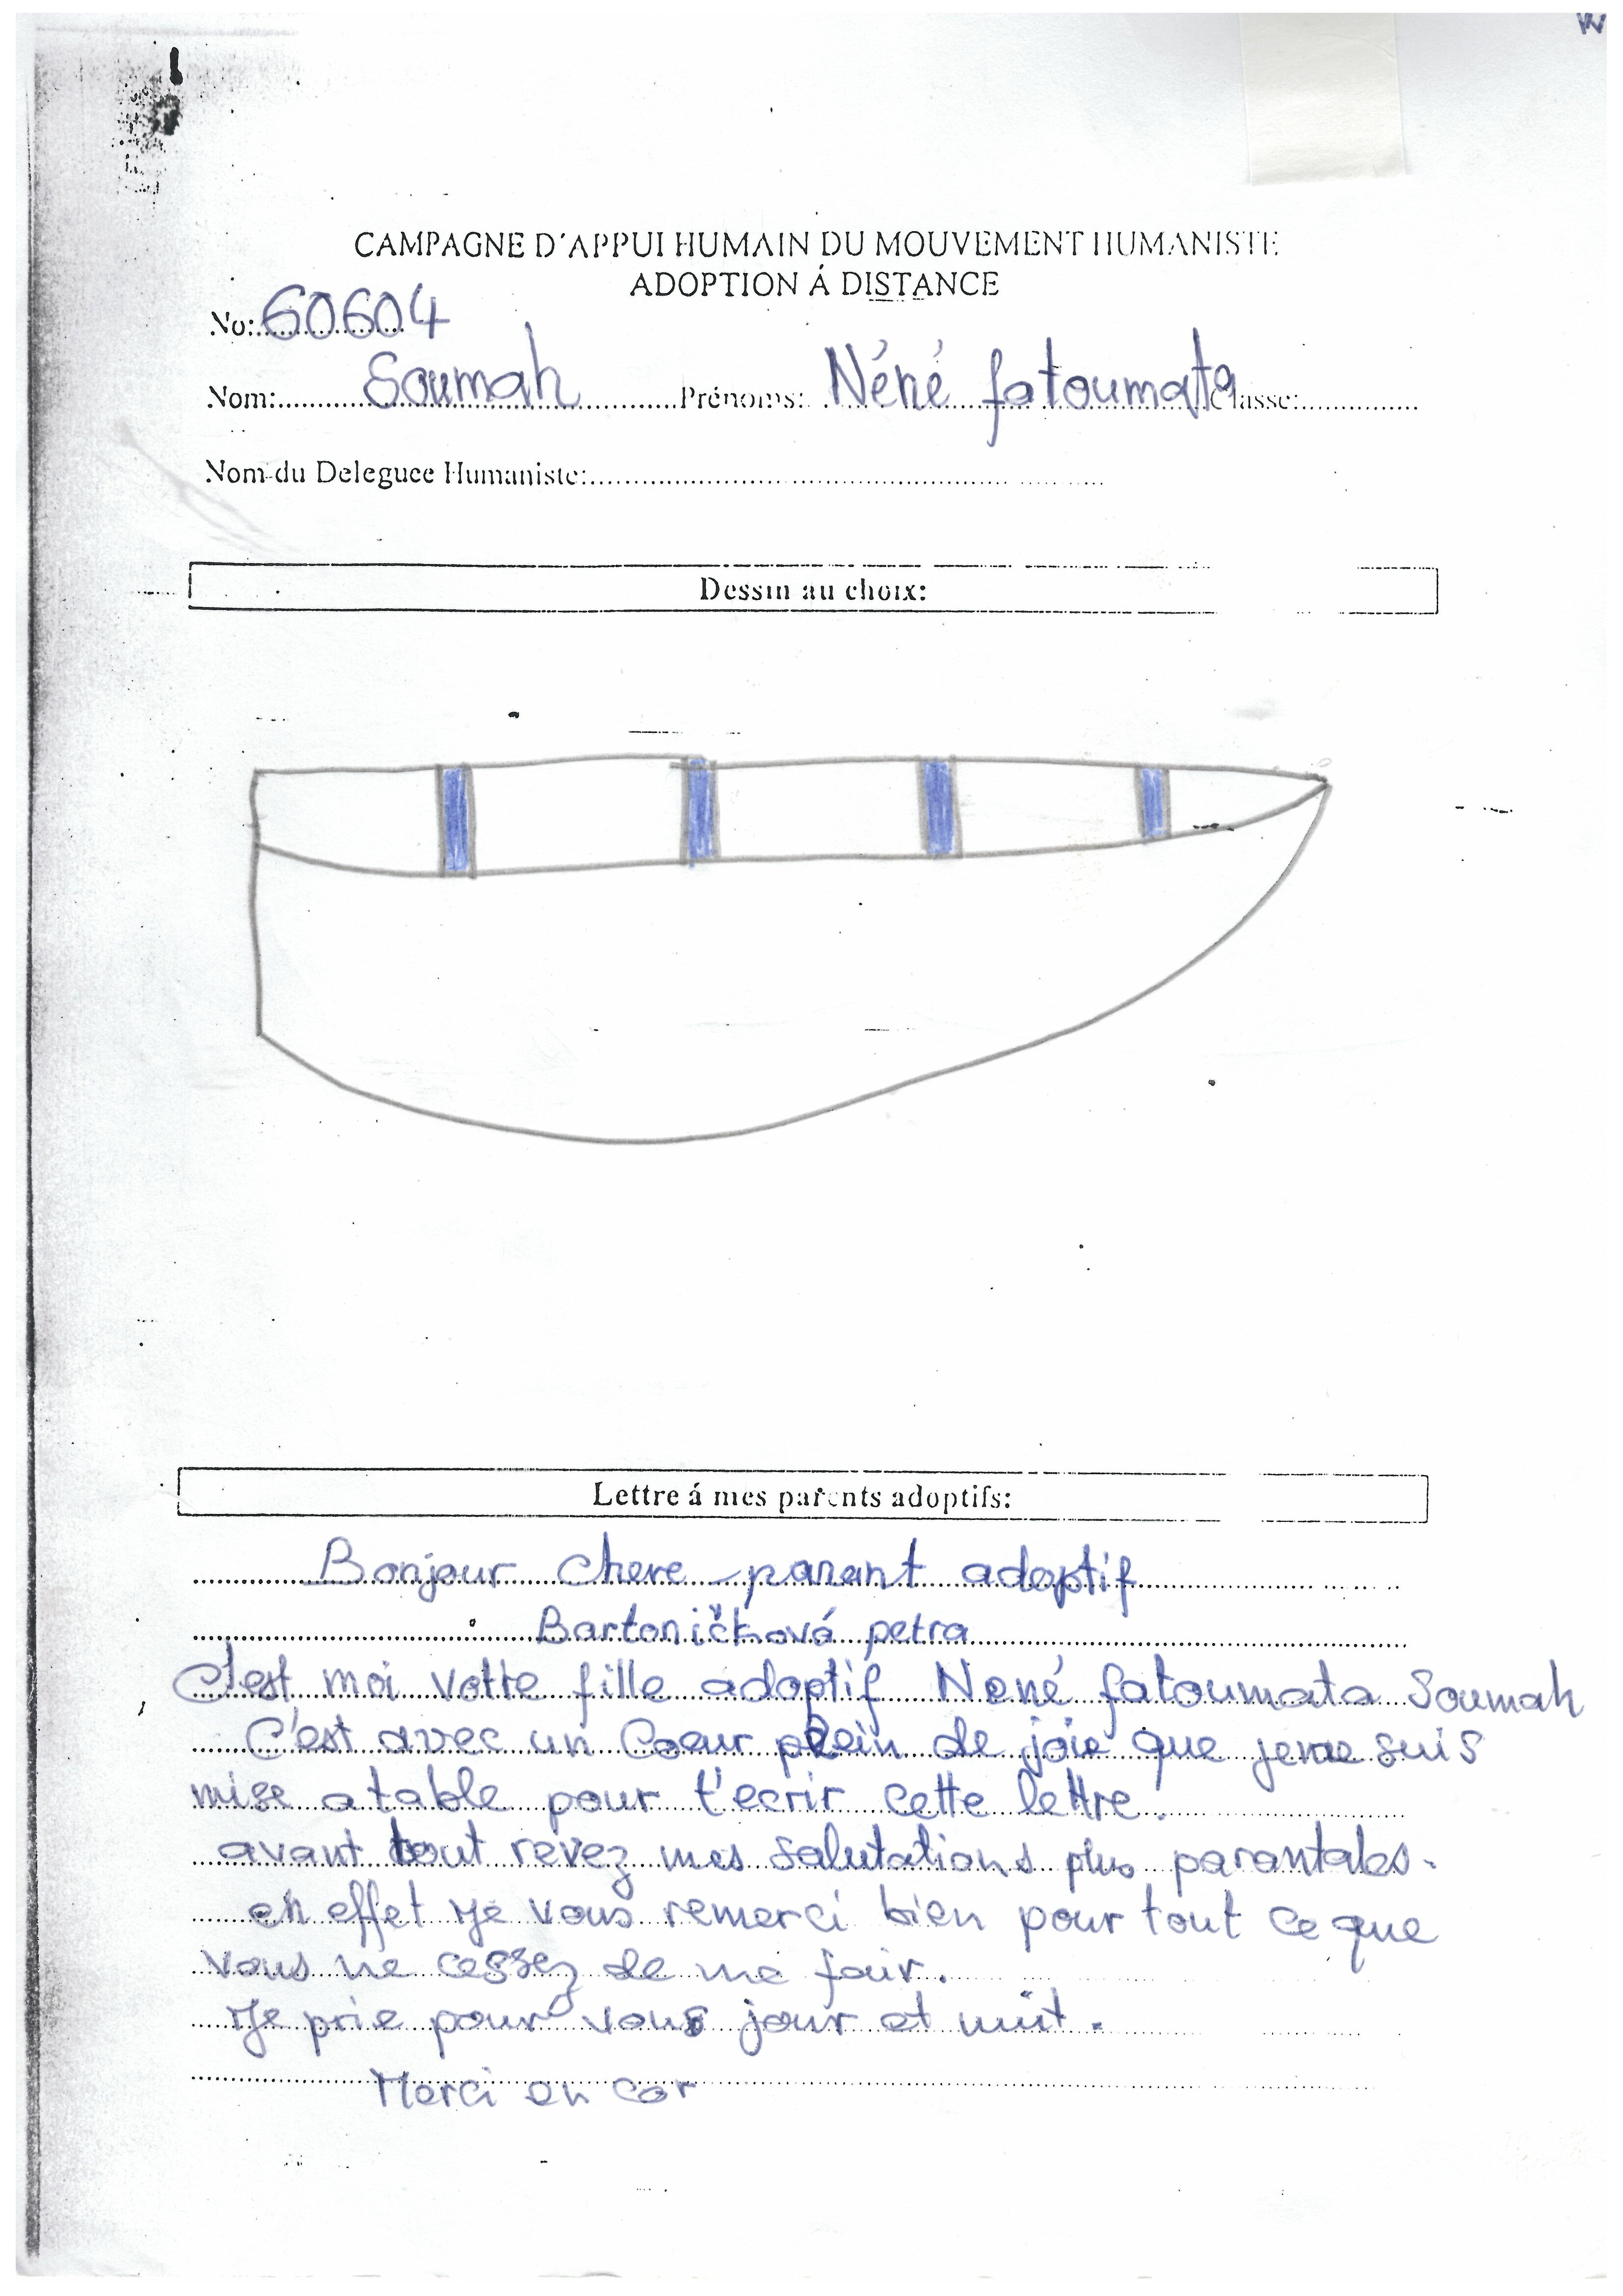 CAMPAGNE D'APPUI HUMAIN DU MOUVEMENT HUMANISTE
ADOPTION Á DISTANCE
No: 60604
Nom: Soumah Prénoms: Néné fatoumata Classe:
Nom du Deleguee Humaniste:
Dessin au choix:
Lettre á mes parents adoptifs:
Bonjour chere parant adoptif
Bartoničková petra
C'est moi votre fille adoptif Nené fatoumata Soumah
C'est avec un Coeur plein de joie que jeme suis
mise a table pour t'ecrir cette lettre.
avant tout revez mes salutations plus parantales.
en effet je vous remerci bien pour tout ce que
vous ne cessez de me fair.
Je prie pour vous jour et nuit.
Merci en cor